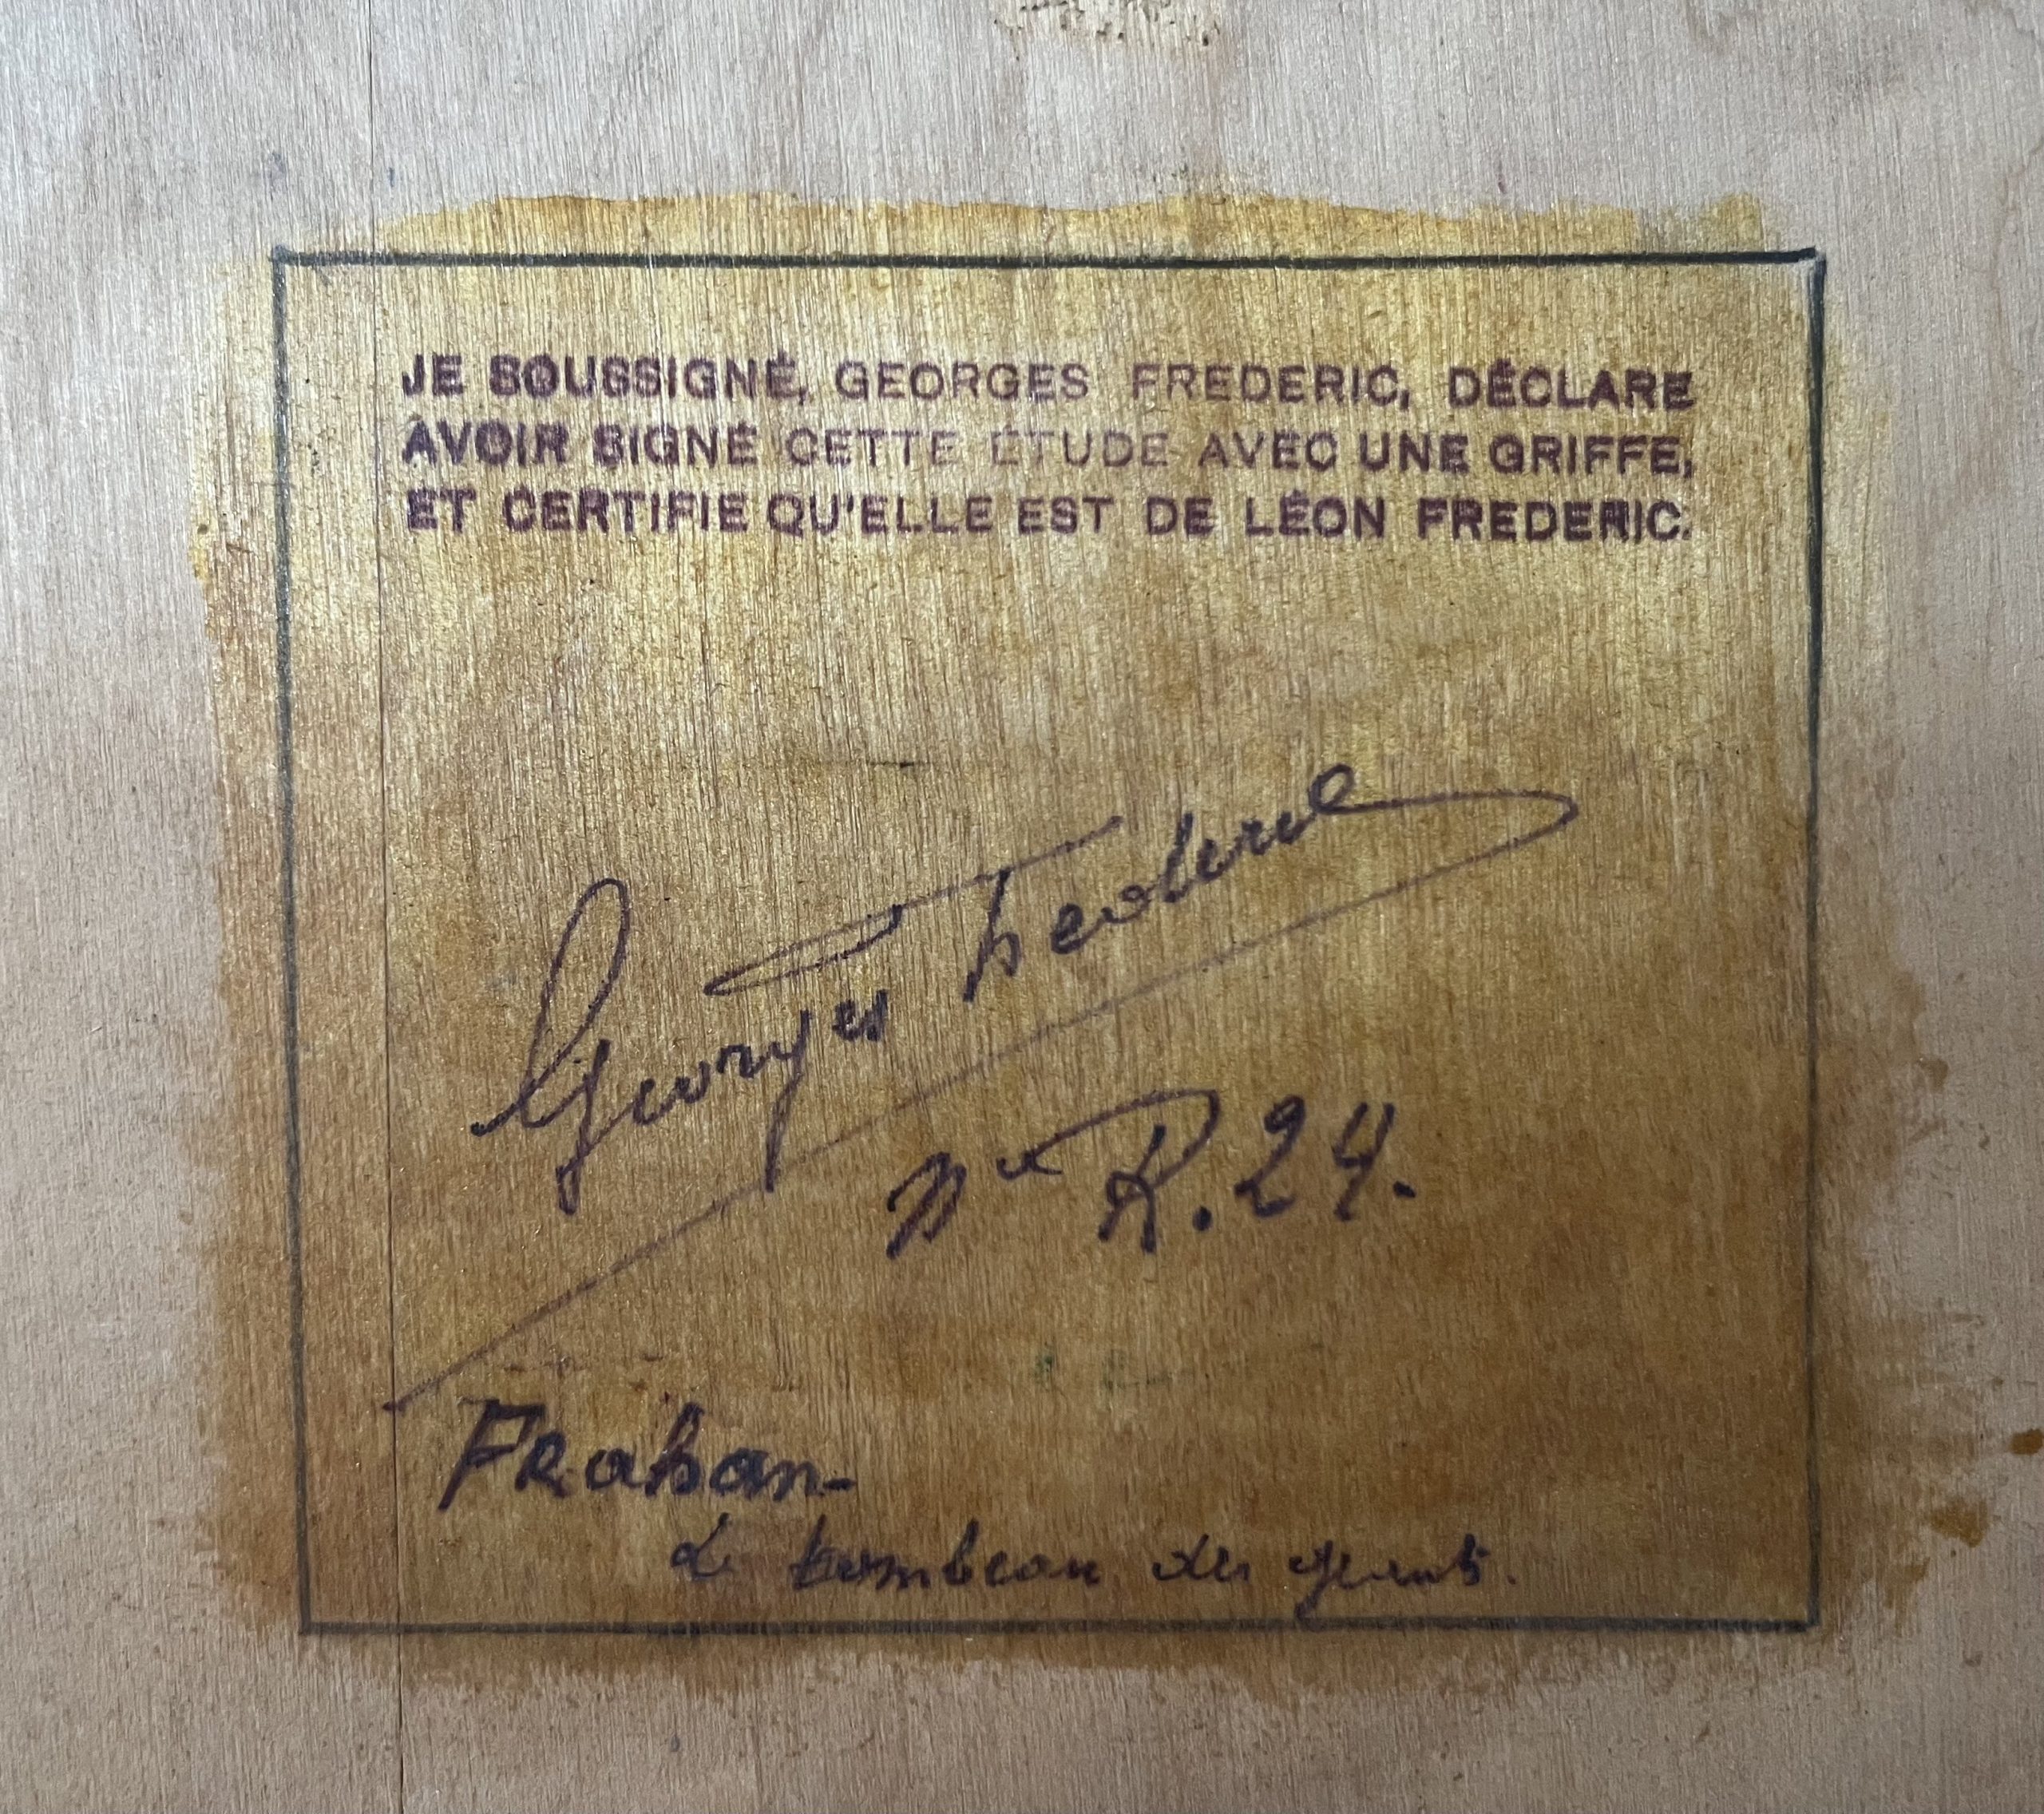 JE SOUSSIGNÉ, GEORGES FREDERIC, DÉCLARE
AVOIR SIGNÉ CETTE ÉTUDE AVEC UNE GRIFFE,
ET CERTIFIE QU'ELLE EST DE LÉON FREDERIC.
Georges Frederic
R. 24.
Frahan-
Le tombeau des géants.